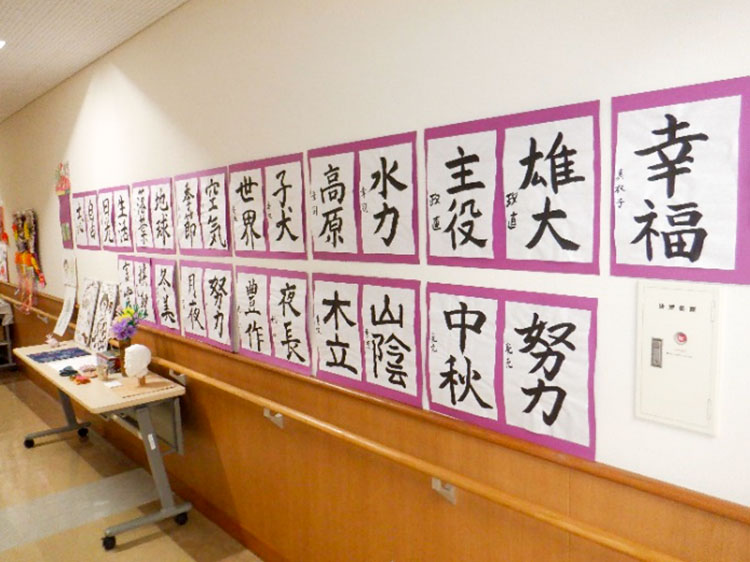 幸福
雄大
主役
政直
政直
水力
高原
子犬
世界
空気
季節
地球
落葉
生活
日光
努力
中秋
山陰
木立
夜長
豊作
努力
月夜
冬美